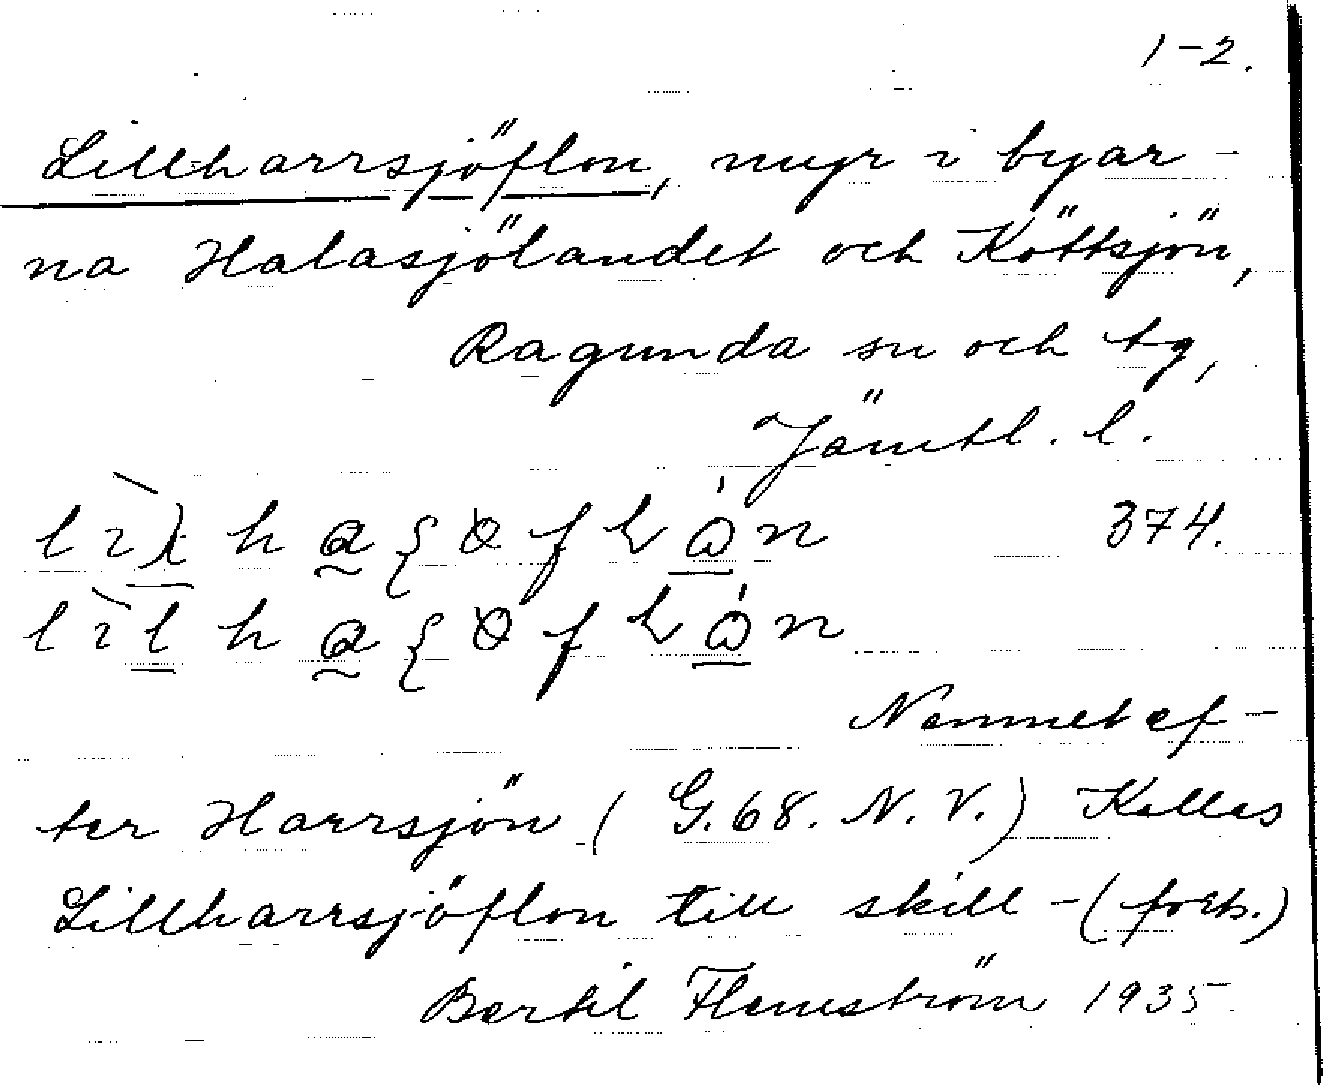 1-2.
Lillharrsjöflon, myr i byar-
na Halasjölandet och Köttsjön,
Ragunda sn och tg,
Jämtl. l.
374.
Namnet ef-
ter Harrsjön (G.68. N.V.) Kallas
Lillharrsjöflon till skill-(forts.)
Bertil Flemström 1935